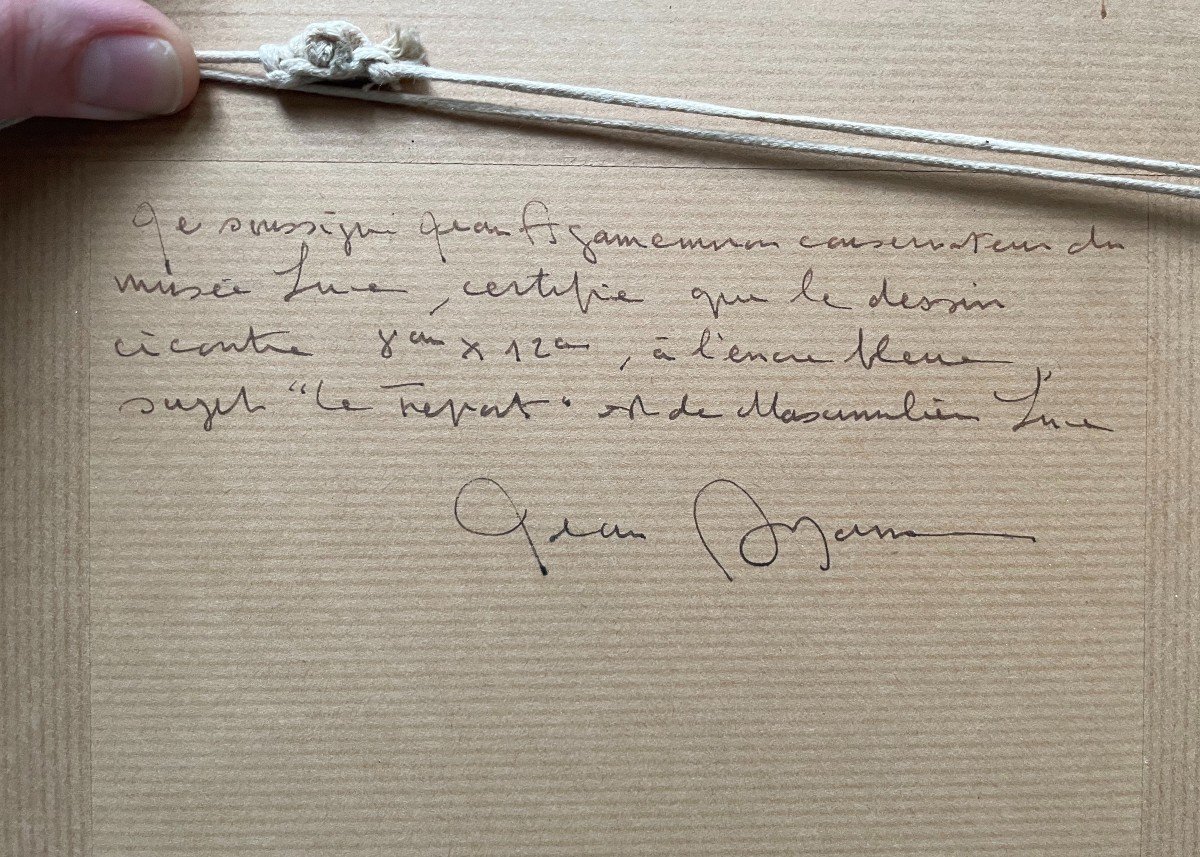 Je soussigné Jean Agamemnon conservateur du
musée Luce, certifie que le dessin
ci contre 8cm x 12cm, à l'encre bleue,
sujet "Le Tréport" est de Maximilien Luce
Jean Agamemnon